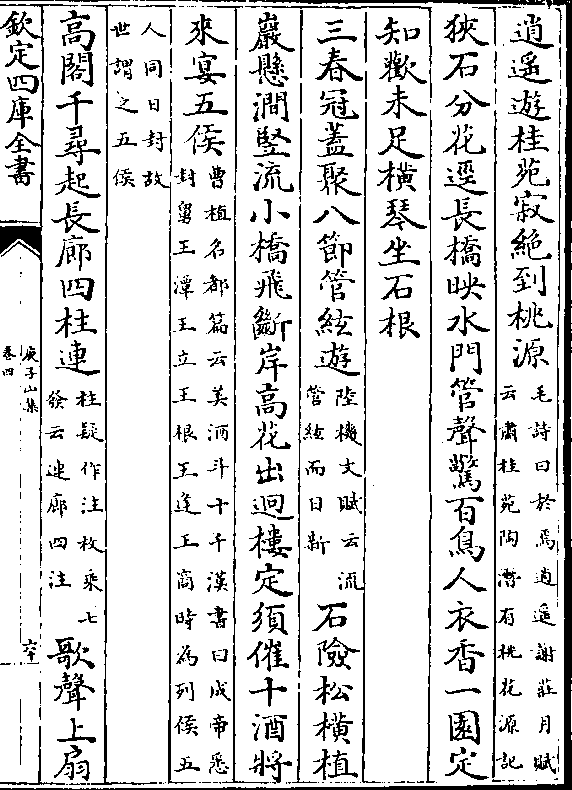 逍遙遊桂苑寂絶到桃源毛詩曰於焉逍遙謝莊月賦
云肅桂苑陶潛有桃花源記
狹石分花逕長橋映水門管聲驚百鳥人衣香一園定
知歡未足橫琴坐石根
三春冠蓋聚八節管絃遊陸機文賦云流
管絃而日新
石險松橫植
巖懸澗豎流小橋飛斷岸高花出迥樓定須催十酒將
來宴五侯曹植名都篇云美酒斗十千漢書曰成帝悉
封舅王潭王立王根王逢王商時為列侯五
人同日封故
世謂之五侯
高閣千尋起長廊四柱連柱疑作注枚乘七
發云連廊四注
歌聲上扇
欽定四庫全書
庾子山集
卷四